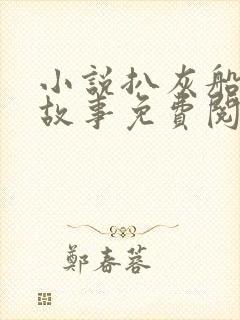 小說扒灰船
故事免費閱
鄭春蓉